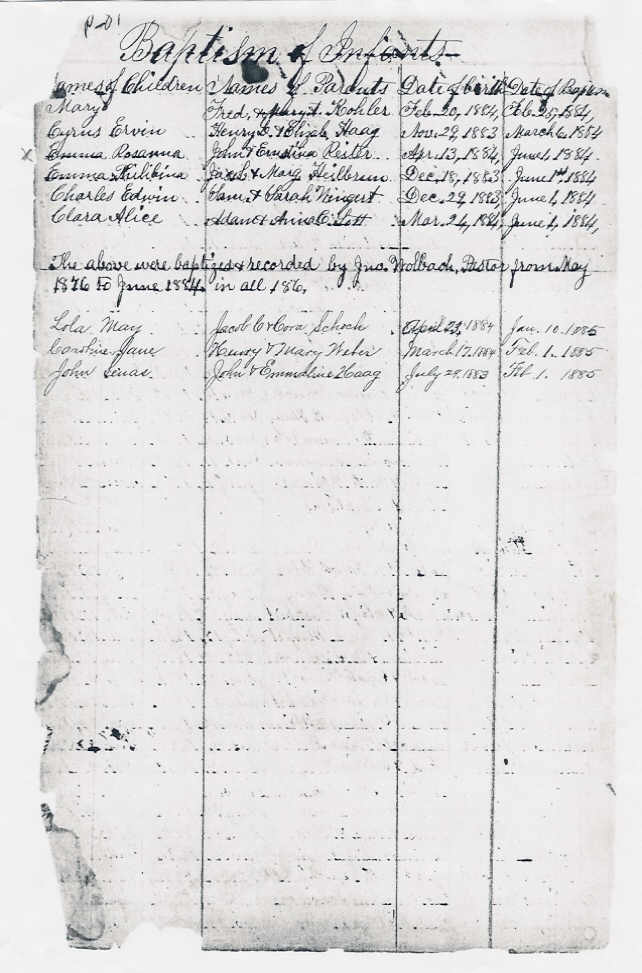 Baptism of Infants.
Names of Children Names of Parents Date of birth Date of Baptism
Mary Fred. & Mary Kohler Feb. 20, 1884, Feb. 25, 1884,
Cyrus Ervin Henry & Haag Nov. 29, 1883 March 6, 1884
x Emma Rosanna John & Ernstina Reiter Apr. 13, 1884, June 1, 1884
Emma Jacob & Marg Heilbrun Dec. 18, 1883 June 1st, 1884
Charles Edwin Sam. & Sarah Wingert Dec. 29, 1883, June 1, 1884
Clara Alice Adam & Anna C. Mar. 24, 1884, June 1, 1884,
The above were baptized & recorded by Jno. Wolbach, Pastor from May
1876 to June 1884. in all 186.
Lola May Jacob C & Cora Schoch April 29, 1884 Jan. 10. 1885
Caroline Jane Henry & Mary Weber March 17. 1884 Feb. 1. 1885
John John & Emmaline Haag July 29. 1883 Feb 1. 1885